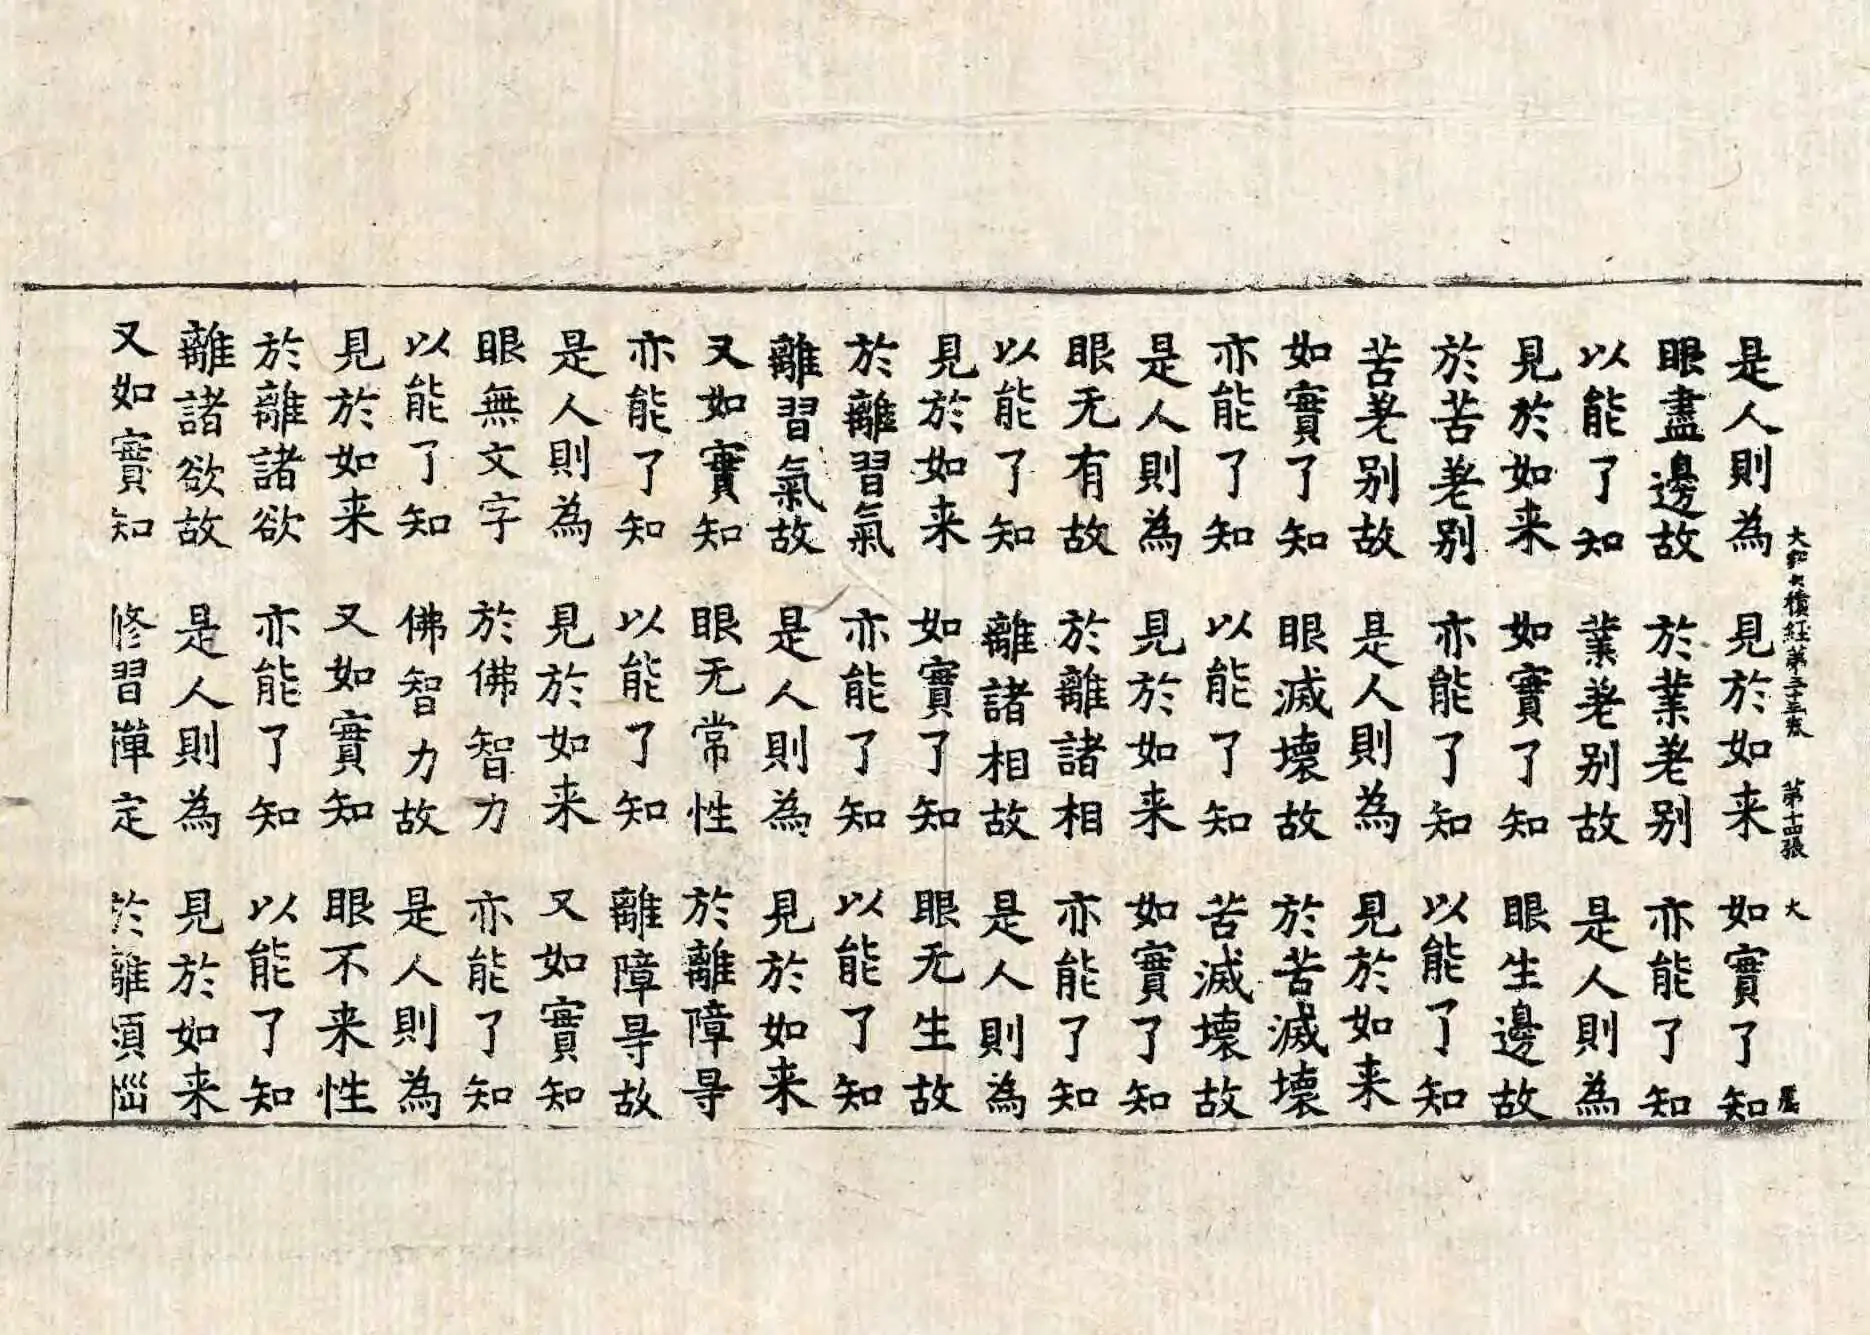 大積経第三十五卷 第十四張 大
是人則為 見於如来 如實了知
眼盡邊故 於業差别 亦能了知
以能了知 業差别故 是人則為
見於如来 如實了知 眼生邊故
於苦差别 亦能了知 以能了知
苦差别故 是人則為 見於如来
如實了知 眼滅壞故 於苦滅壞
亦能了知 以能了知 苦滅壞故
是人則為 見於如来 如實了知
眼无有故 於離諸相 亦能了知
以能了知 離諸相故 是人則為
見於如来 如實了知 眼无生故
於離習氣 亦能了知 以能了知
離習氣故 是人則為 見於如来
又如實知 眼无常性 於離障㝵
亦能了知 以能了知 離障㝵故
是人則為 見於如来 又如實知
眼無文字 於佛智力 亦能了知
以能了知 佛智力故 是人則為
見於如来 又如實知 眼不来性
於離諸欲 亦能了知 以能了知
離諸欲故 是人則為 見於如来
又如實知 修習禪定 於離煩惱